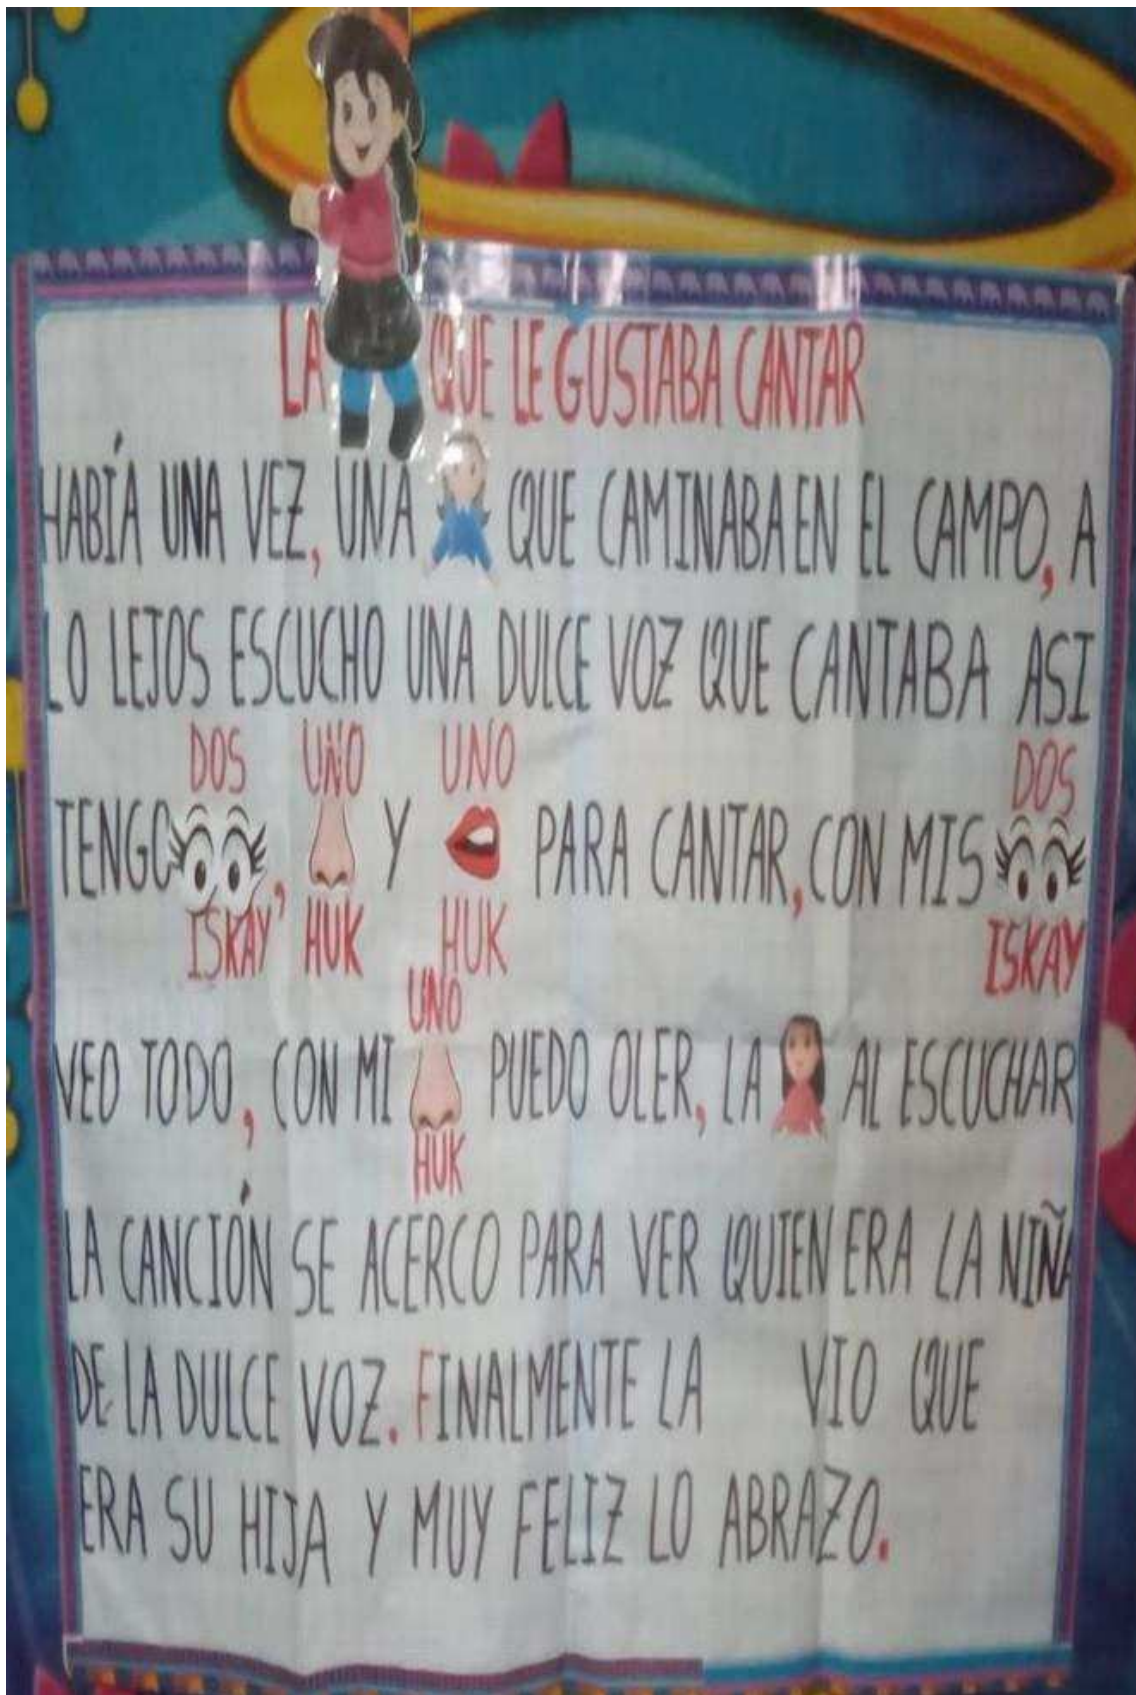 LA QUE LE GUSTABA CANTAR
HABÍA UNA VEZ, UNA QUE CAMINABA EN EL CAMPO, A
LO LEJOS ESCUCHO UNA DULCE VOZ QUE CANTABA ASI
DOS UNO UNO DOS
TENGO , Y PARA CANTAR, CON MIS
ISKAY HUK HUK ISKAY
UNO
VEO TODO, CON MI PUEDO OLER, LA AL ESCUCHAR
HUK
LA CANCIÓN SE ACERCO PARA VER QUIEN ERA LA NIÑA
DE LA DULCE VOZ. FINALMENTE LA VIO QUE
ERA SU HIJA Y MUY FELIZ LO ABRAZO.